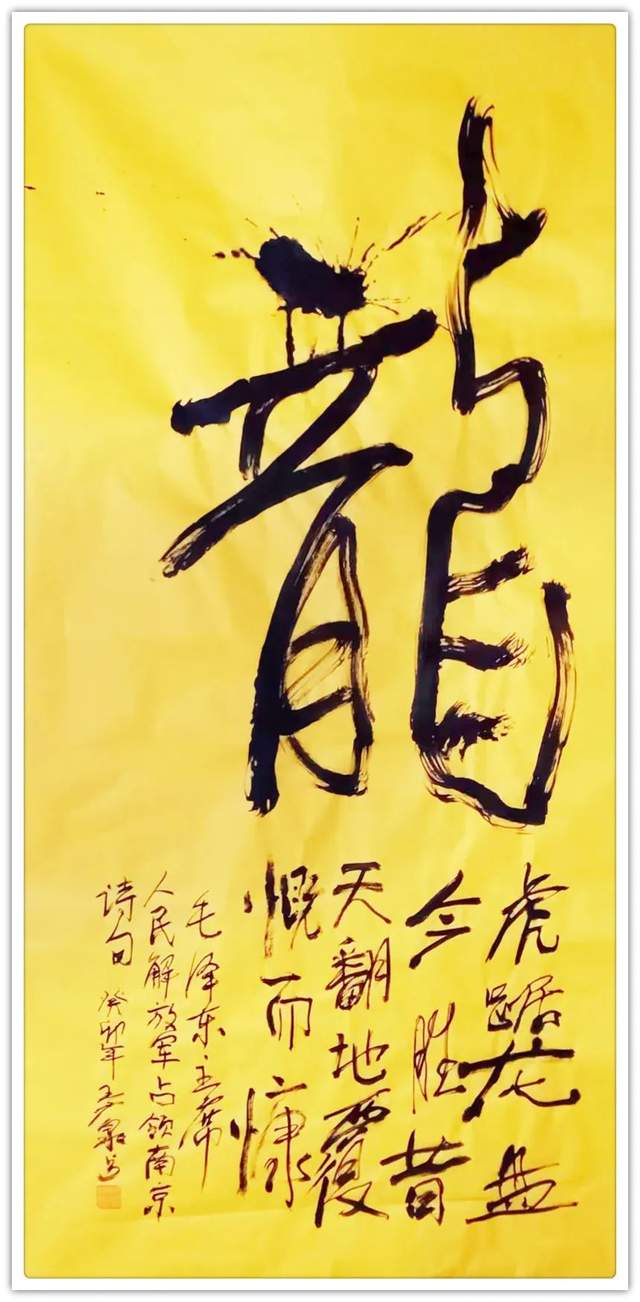 龍
虎踞龙盘
今胜昔
天翻地覆
慨而慷
毛泽东主席
人民解放军占领南京
诗句 癸卯年 泉书